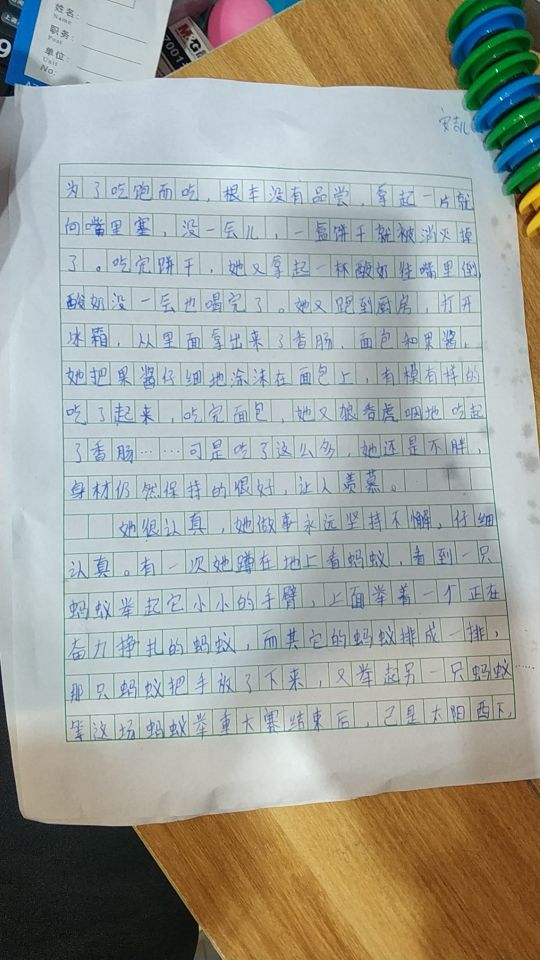 姓名:
Name
职务:
Post
单位:
Unit
No:
9
M&G
7001
安吉儿
为了吃饱而吃，根本没有品尝，拿起一片就
向嘴里塞，没一会儿，一盒饼干就被消灭掉
了。吃完饼干，她又拿起一杯酸奶往嘴里倒，
酸奶没一会也喝完了。她又跑到厨房，打开
冰箱，从里面拿出来了香肠、面包和果酱，
她把果酱仔细地涂沫在面包上，有模有样的
吃了起来，吃完面包，她又狼吞虎咽地吃起
了香肠……可是吃了这么多，她还是不胖，
身材仍然保持的很好，让人羡慕。
她很认真，她做事永远坚持不懈，仔细
认真。有一次她蹲在地上看蚂蚁，看到一只
蚂蚁举起它小小的手臂，上面举着一个正在
奋力挣扎的蚂蚁，而其它的蚂蚁排成一排，
那只蚂蚁把手放了下来，又举起另一只蚂蚁……
等这场蚂蚁举重大赛结束后，己是太阳西下，